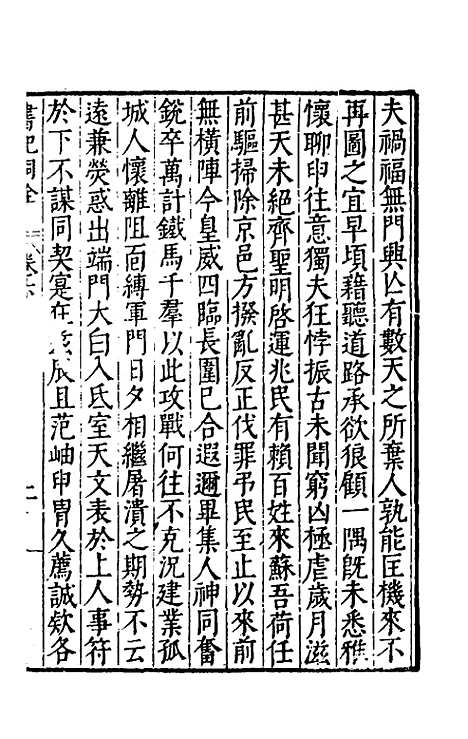 夫禍福無門興亾有數天之所棄人孰能匡機來不
再圖之宜早頃藉聽道路承欲狼顧一隅旣未悉雅
懷聊申往意獨夫狂悖振古未聞窮凶極虐歲月滋
甚天未絕齊聖明啓運兆民有賴百姓來蘇吾荷任
前驅掃除京邑方撥亂反正伐罪弔民至止以來前
無橫陣今皇威四臨長圍已合遐邇畢集人神同奮
銳卒萬計鐵馬千羣以此攻戰何往不克況建業孤
城人懷離阻面縛軍門日夕相繼屠潰之期勢不云
遠兼熒惑出端門大白入氐室天文表於上人事符
於下不謀同契寔在辰且范岫申冑久薦誠欵各
書記洞詮 卷六 二